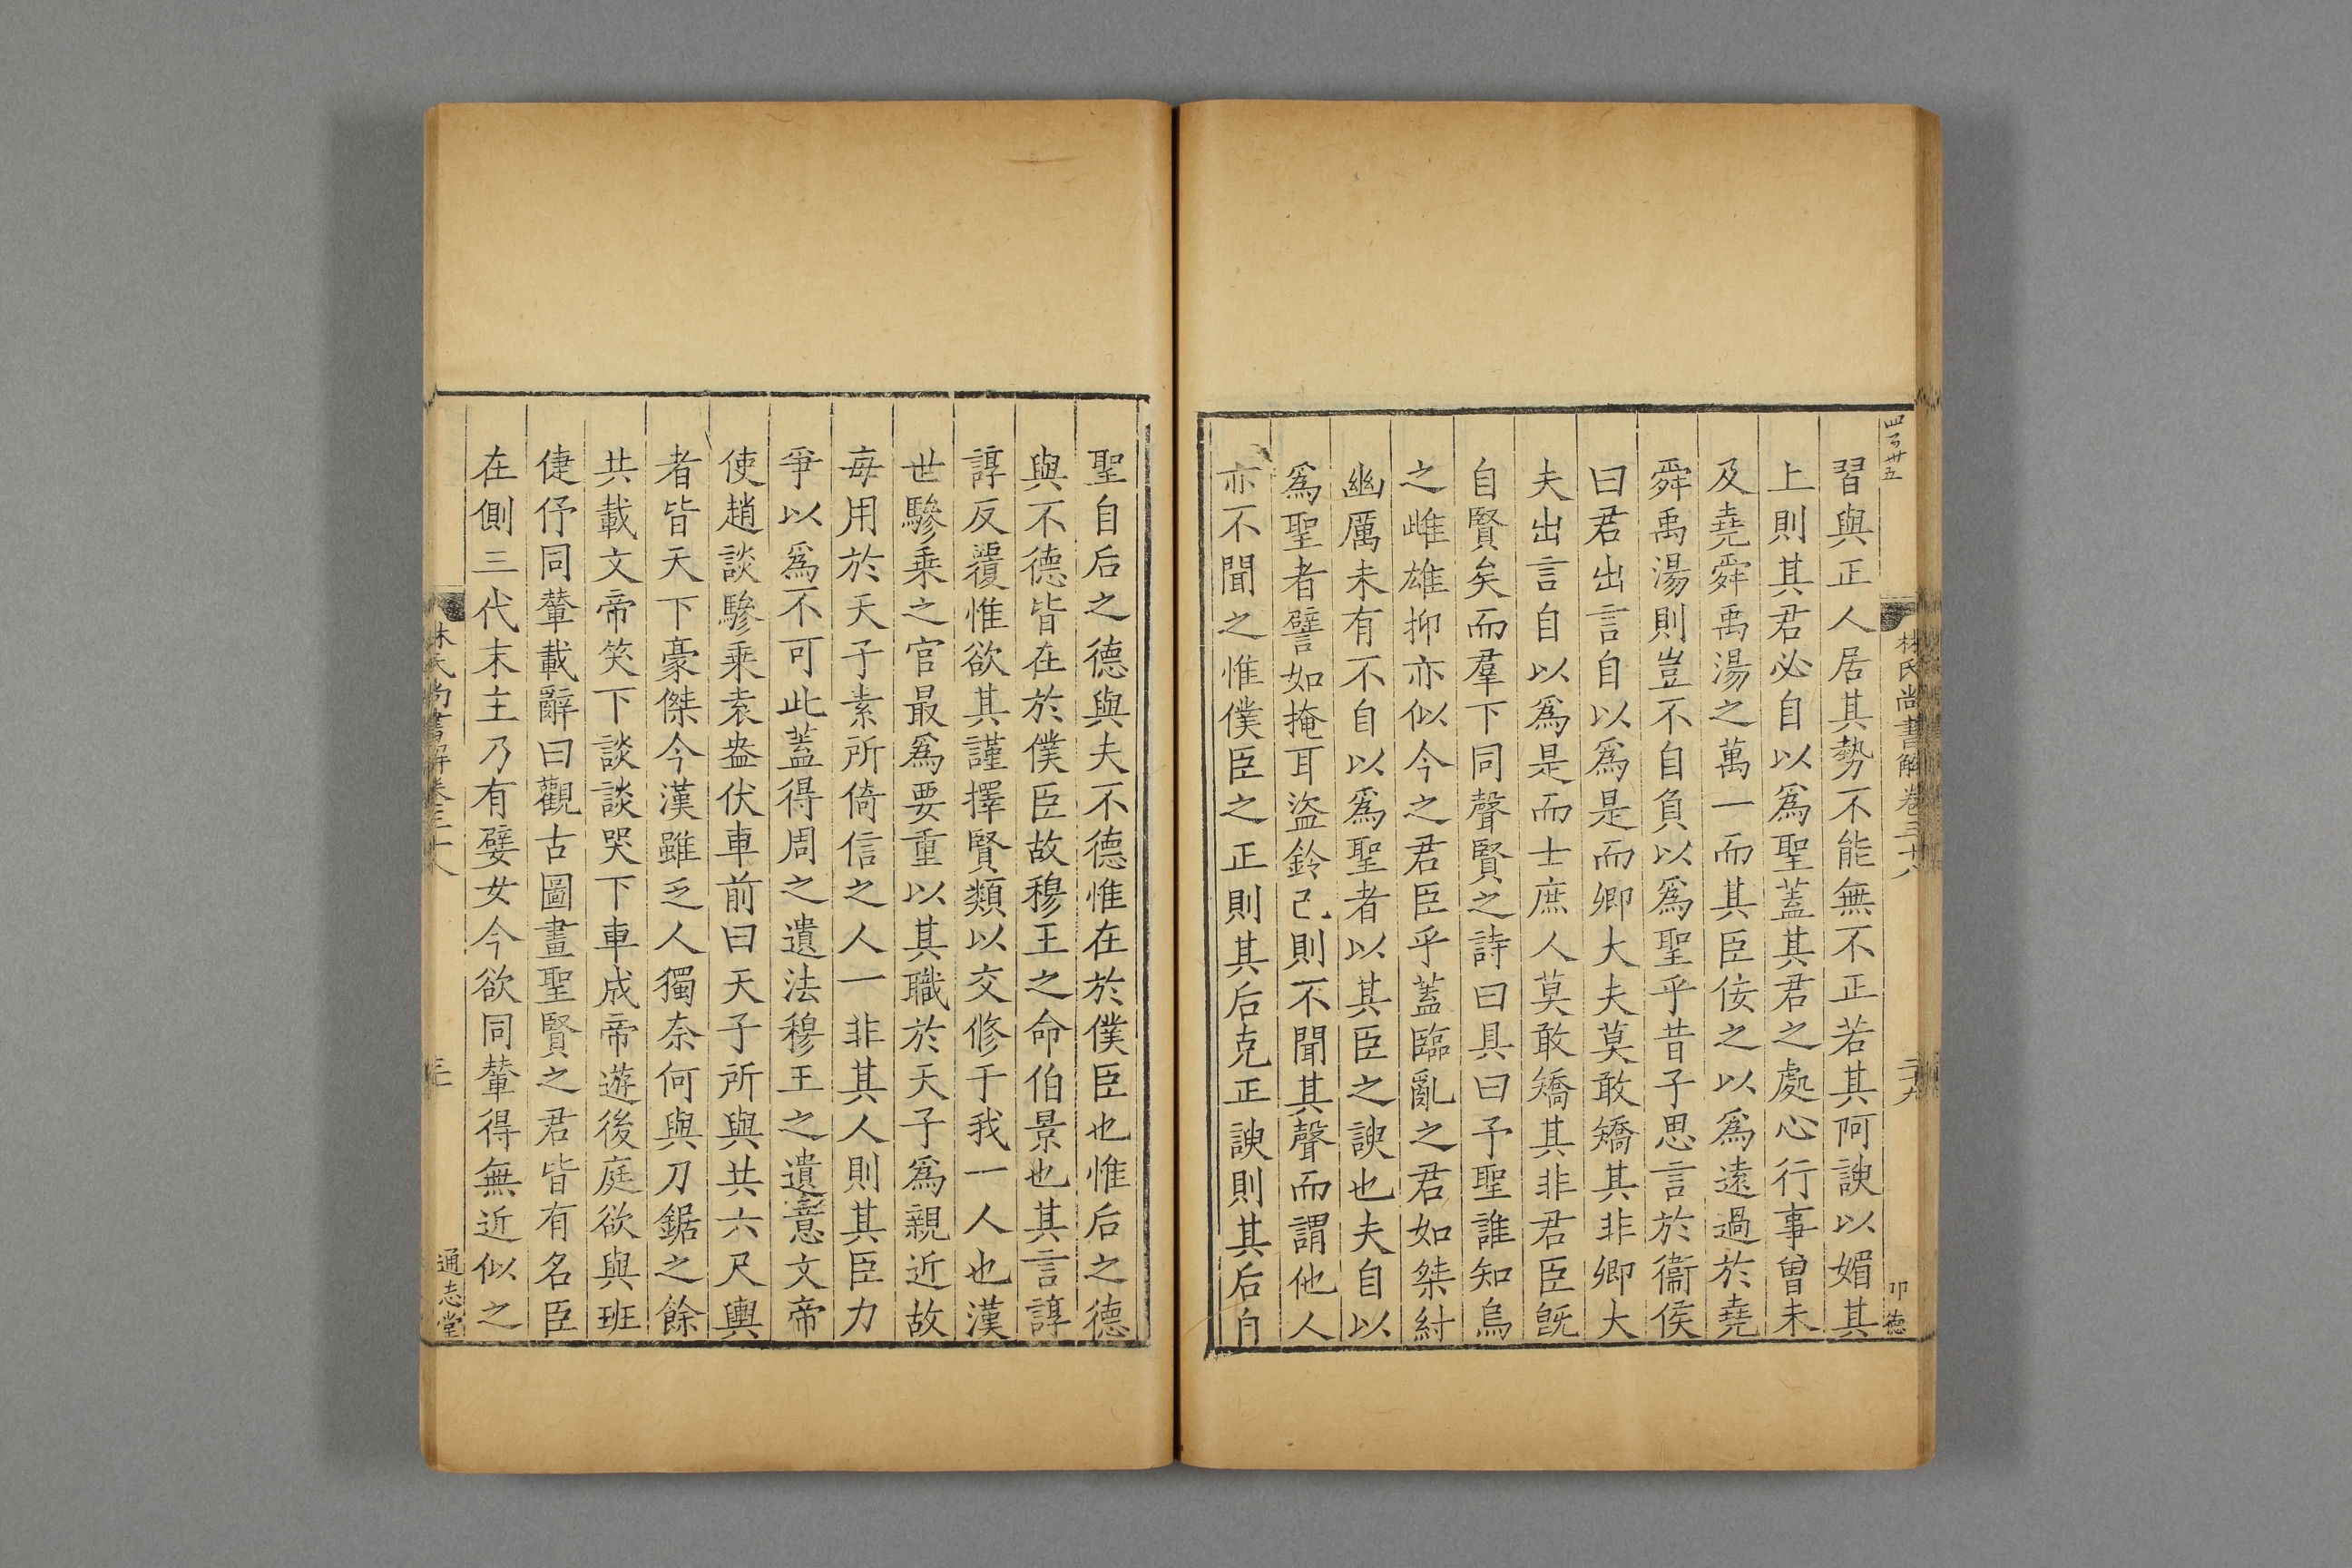 四百卅五
林氏尚書解卷三十八
二九
卬德
習與正人居其勢不能無不正若其阿諛以媚其
上則其君必自以爲聖蓋其君之處心行事曾未
及堯舜禹湯之萬一而其臣佞之以爲遠過於堯
舜禹湯則豈不自負以爲聖乎昔子思言於衞侯
曰君出言自以爲是而卿大夫莫敢矯其非卿大
夫出言自以爲是而士庶人莫敢矯其非君臣旣
自賢矣而羣下同聲賢之詩曰具曰予聖誰知烏
之雌雄抑亦似今之君臣乎蓋臨亂之君如桀紂
幽厲未有不自以爲聖者以其臣之諛也夫自以
爲聖者譬如掩耳盜鈴己則不聞其聲而謂他人
亦不聞之惟僕臣之正則其后克正諛則其后自
聖自后之德與夫不德惟在於僕臣也惟后之德
與不德皆在於僕臣故穆王之命伯景也其言諄
諄反覆惟欲其謹擇賢類以交修于我一人也漢
世驂乘之官最爲要重以其職於天子爲親近故
每用於天子素所倚信之人一非其人則其臣力
爭以爲不可此蓋得周之遺法穆王之遺意文帝
使趙談驂乘袁盎伏車前曰天子所與共六尺輿
者皆天下豪傑今漢雖乏人獨奈何與刀鋸之餘
共載文帝笑下談談哭下車成帝遊後庭欲與班
倢伃同輦載辭曰觀古圖畫聖賢之君皆有名臣
在側三代末主乃有嬖女今欲同輦得無近似之
林氏尚書解卷三十八
三十
通志堂